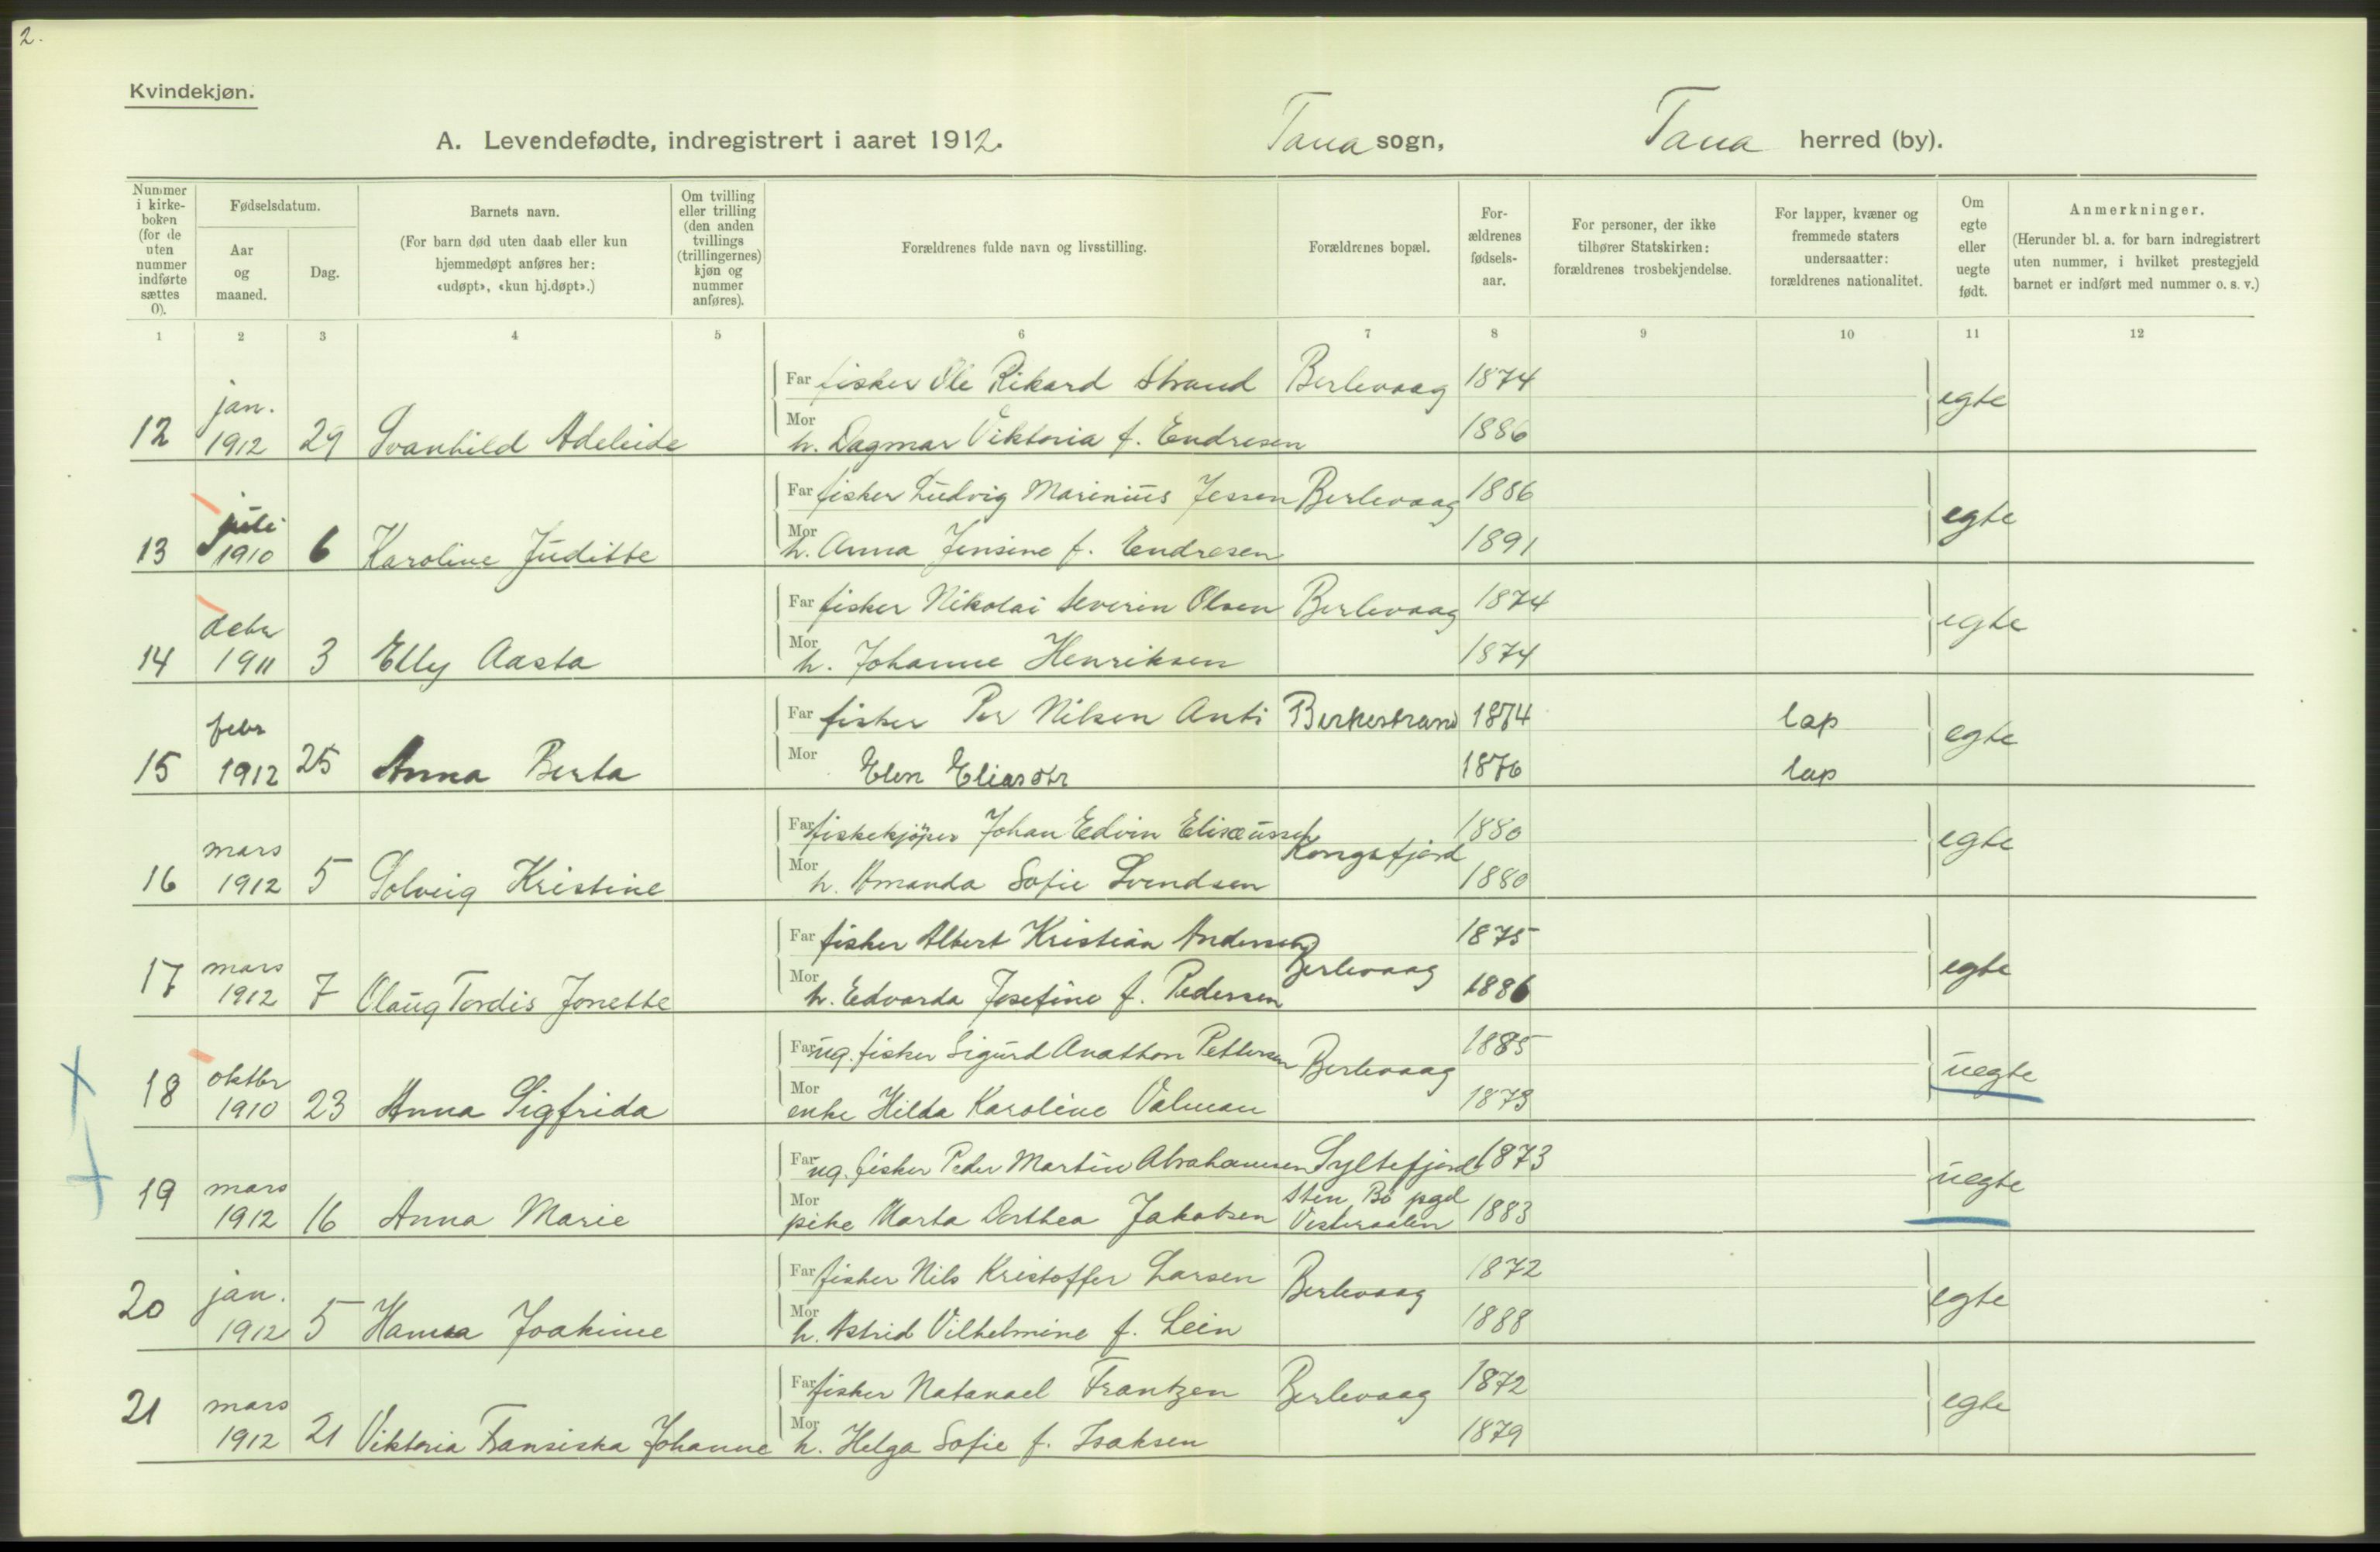 2.
Kvindekjøn.
A. Levendefødte, indregistrert i aaret 1912. Tana sogn, Tana herred (by).
Nummer i kirke-boken (for de uten nummer indførte sættes 0).
Fødselsdatum.
Aar og maaned.
Dag.
Barnets navn.
(For barn død uten daab eller kun hjemmedøpt anføres her: «udøpt», «kun hj.døpt».)
Om tvilling eller trilling (den anden tvillings (trillingernes) kjøn og nummer anføres).
Forældrenes fulde navn og livsstilling.
Forældrenes bopæl.
For-ældrenes fødsels-aar.
For personer, der ikke tilhører Statskirken: forældrenes trosbekjendelse.
For lapper, kvæner og fremmede staters undersaatter: forældrenes nationalitet.
Om egte eller uegte født.
Anmerkninger.
(Herunder bl. a. for barn indregistrert uten nummer, i hvilket prestegjeld barnet er indført med nummer o. s. v.)
1 2 3 4 5 6 7 8 9 10 11 12
Far fisker Ole Rikard Strand Berlevaag 1874
12 jan. 1912 29 Svanhild Adeleide egte
Mor h. Dagmar Viktoria f. Endresen 1886
Far fisker Ludvig Marinius Jessen Berlevaag 1886
13 juli 1910 6 Karoline Juditte egte
Mor h. Anna Jensine f. Endresen 1891
Far fisker Nikolai Severin Olsen Berlevaag 1874
14 debr 1911 3 Elly Aasta egte
Mor h. Johanne Henriksen 1874
Far fisker Per Nilsen Anti Birkestrand 1874 lap
15 febr 1912 25 Anna Berta egte
Mor Elen Eliasdtr 1876 lap
Far fiskekjöper Johan Edvin Elisæussen Kongsfjord 1880
16 mars 1912 5 Solveig Kristine egte
Mor h. Amanda Sofie Svendsen 1880
Far fisker Albert Kristian Andersen Berlevaag 1875
17 mars 1912 7 Olaug Tordis Jonette egte
Mor h. Edvarda Josefine f. Pedersen 1886
Far ug. fisker Sigurd Anathon Pettersen Berlevaag 1885
18 oktbr 1910 23 Anna Sigfrida uegte
Mor enke Hilda Karoline Valman 1873
Far ug. fisker Peder Martin Abrahamsen Syltefjord 1873
19 mars 1912 16 Anna Marie uegte
Mor pike Marta Dorthea Jakobsen Sten Bö pgd Vesteraalen 1883
Far fisker Nils Kristoffer Larsen Berlevaag 1872
20 jan. 1912 5 Hanna Joakime egte
Mor h. Astrid Vilhelmine f. Lein 1888
Far fisker Natanael Frantzen Berlevaag 1872
21 mars 1912 21 Viktoria Fransiska Johanne egte
Mor h. Helga Sofie f. Isaksen 1879